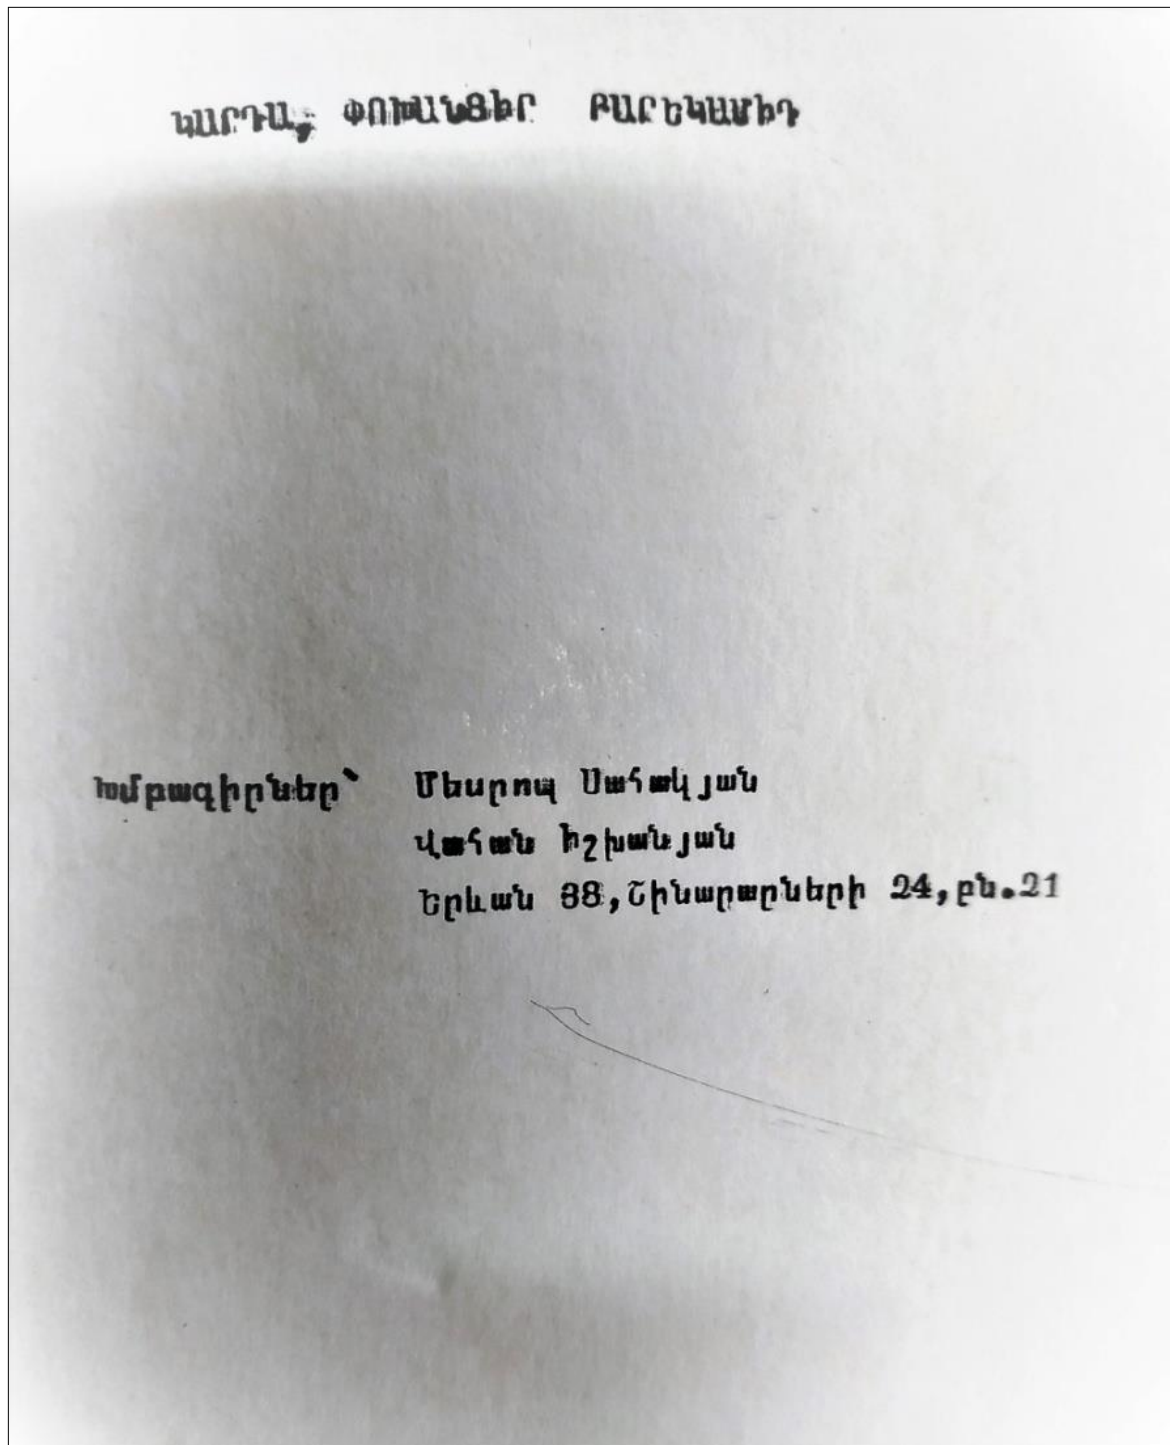 ԿԱՐԴԱ, ՓՈԽԱՆՑԻՐ ԲԱՐԵԿԱՄԻԴ
Խմբագիրներ՝ Մեսրոպ Սահակյան
Վահան Իշխանյան
Երևան 38,Շինարարների 24,բն.21